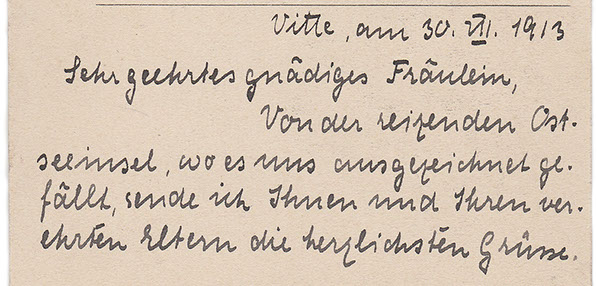 Vitte, am 30. VII. 1913
Sehr geehrtes gnädiges Fräulein,
Von der reizenden Ost-
seeinsel, wo es uns ausgezeichnet ge-
fällt, sende ich Ihnen und Ihren ver-
ehrten Eltern die herzlichsten Grüsse.